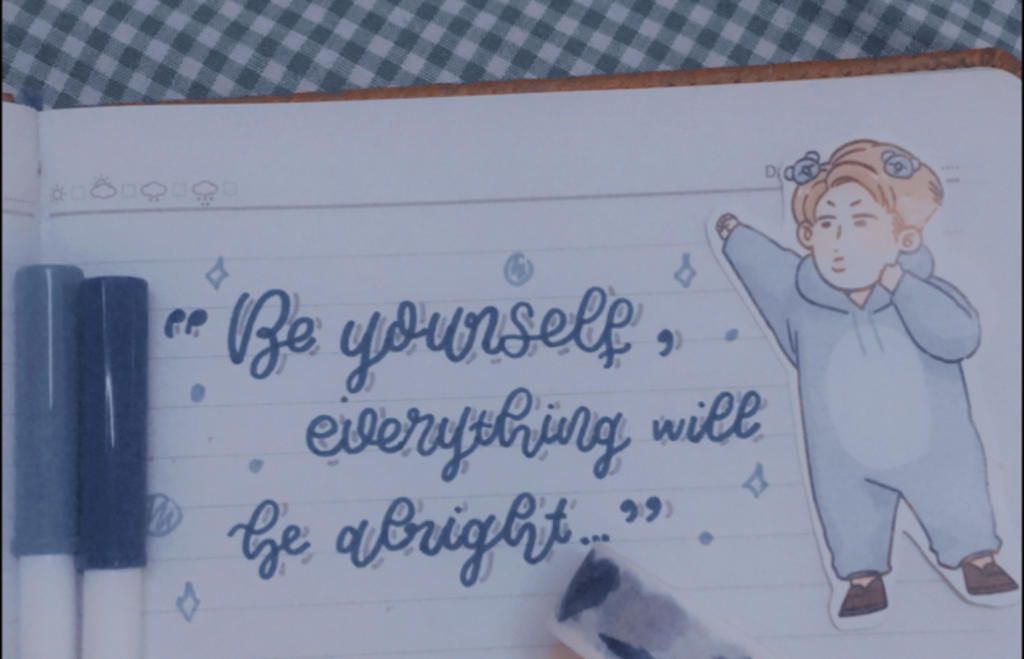 D
“ Be yourself,
everything will
be alright...”